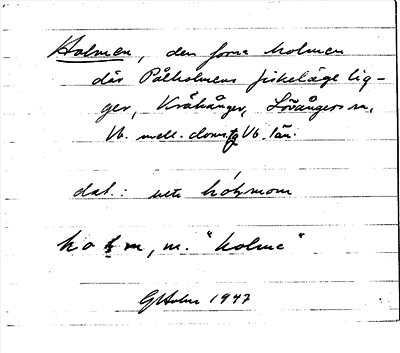 Holmen, den forna holmen
där Pålholmens fiskeläge lig-
ger, Kråkånger, Lövångers sn,
Vb. mell. domsg Vb. län.
dal.: ute hólmom
holm, m. "holme"
GHolm 1947